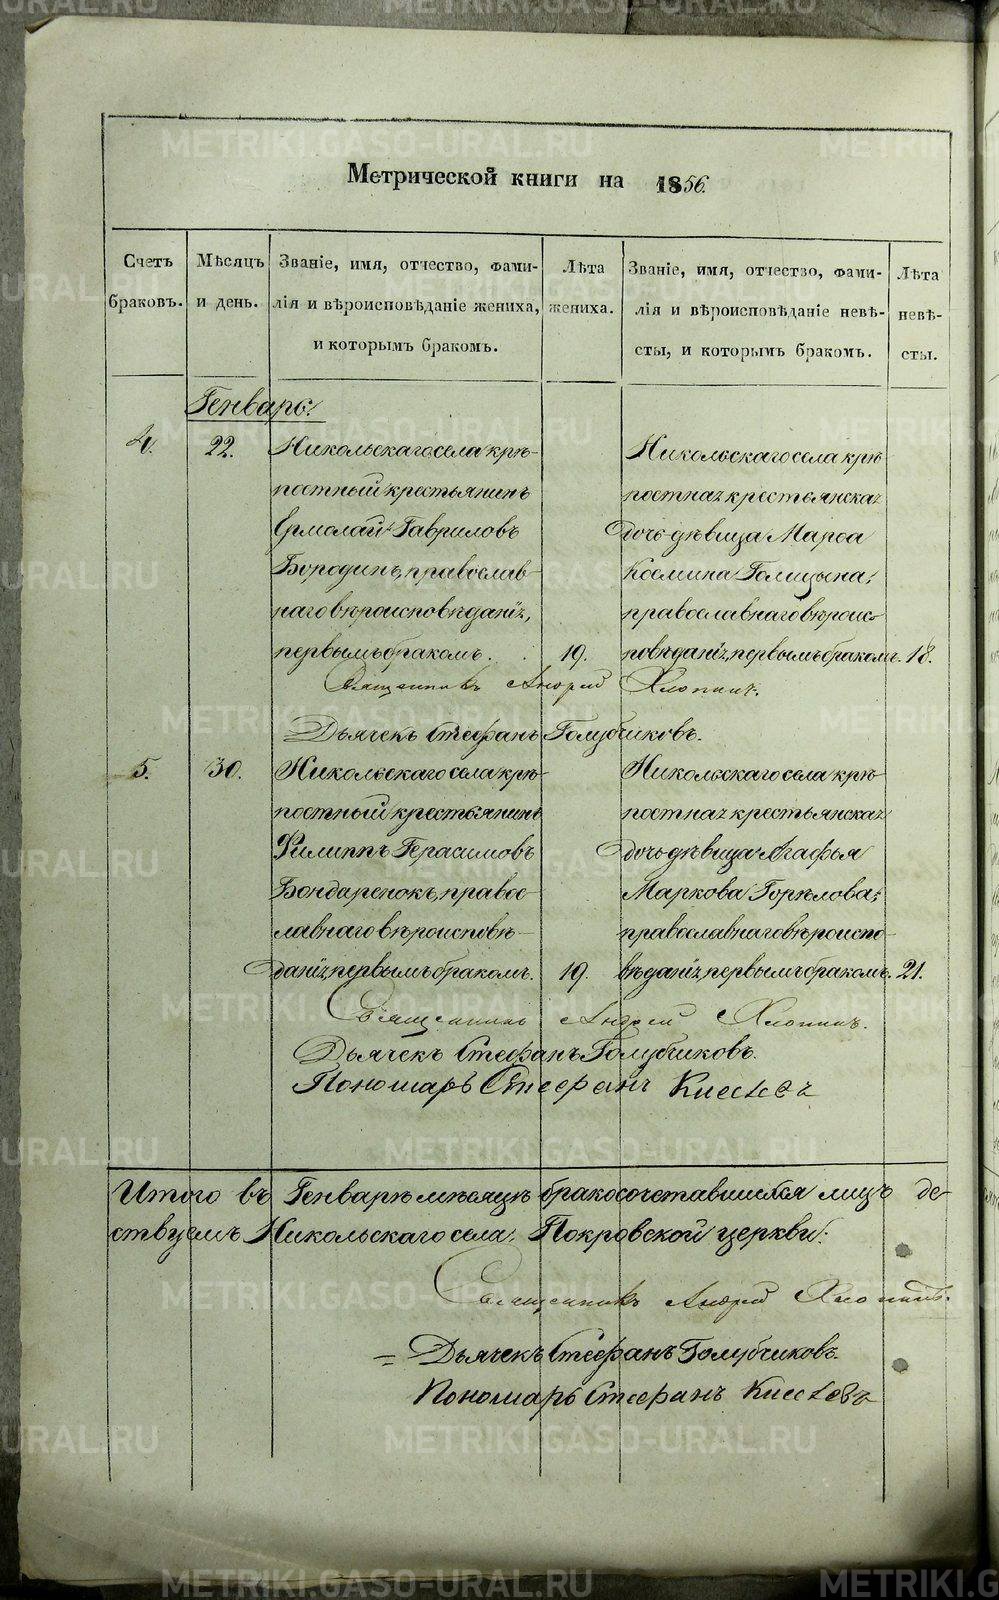 METRIKI.GASO-URAL.RU
Метрической книги на 1856.
Счетъ браковъ.
Мѣсяцъ и день.
Званіе, имя, отчество, фами-
лія и вѣроисповѣданіе жениха,
и которымъ бракомъ.
Лѣта жениха.
Званіе, имя, отчество, фами-
лія и вѣроисповѣданіе невѣ-
сты, и которымъ бракомъ.
Лѣта невѣ-
сты.
Генварь:
4. 22. Никольскаго села крѣ-
постный крестьянинъ
Ермолай Гавриловъ
Бородинъ, православ-
наго вѣроисповѣданія,
первымъ бракомъ. 19.
Никольскаго села крѣ
постная крестьянская
дочь дѣвица Марѳа
Космина Голицына,
православнаго вѣроис-
повѣданія, первымъ бракомъ. 18.
Священникъ Андрей Хлопинъ.
Дьячекъ Стефанъ Голубчиковъ.
5. 30. Никольскаго села крѣ-
постный крестьянинъ
Филиппъ Герасимовъ
Бондаренокъ, правос-
лавнаго вѣроисповѣ-
данія, первымъ бракомъ. 19.
Никольскаго села крѣ
постная крестьянская
дочь дѣвица Агафья
Маркова Горѣлова,
православнаго вѣроиспо-
вѣданія, первымъ бракомъ. 21.
Священникъ Андрей Хлопинъ.
Дьячекъ Стефанъ Голубчиковъ.
Пономарь Стефанъ
Итого въ Генварѣ мѣсяцѣ бракосочетавшихся лицъ де-
Никольскаго села, Покровской церкви:
Священникъ Андрей Хлопинъ.
= Дьячекъ Стефанъ Голубчиковъ.
Пономарь Стефанъ